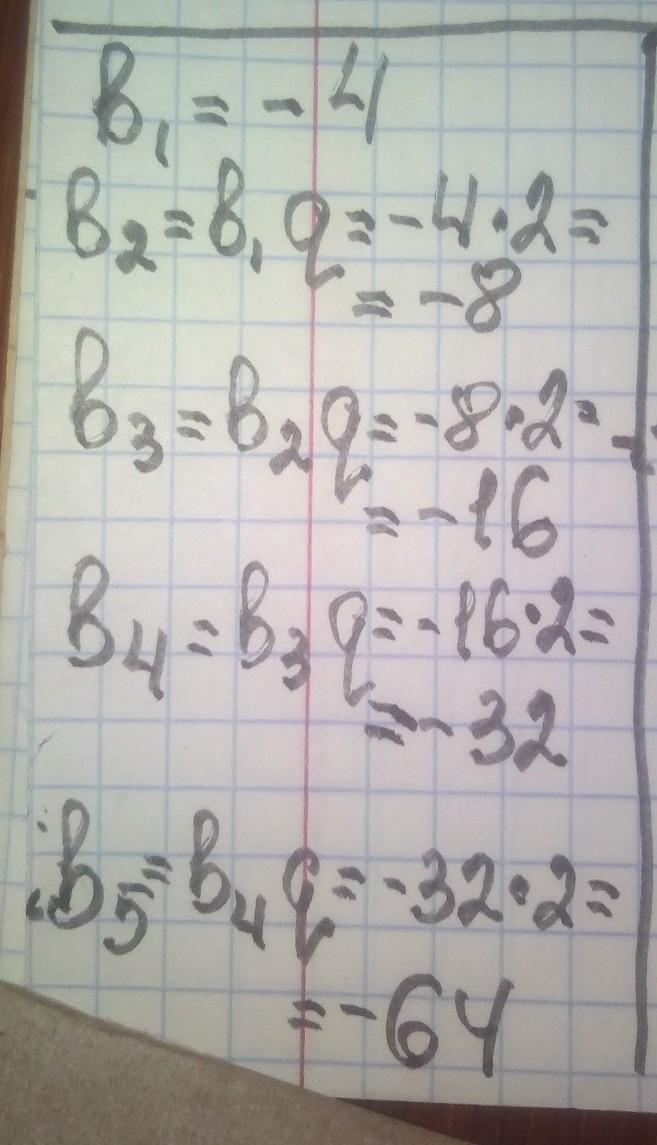 b₁ = -4
b₂ = b₁ q = -4·2 =
= -8
b₃ = b₂ q = -8·2 =
= -16
b₄ = b₃ q = -16·2 =
= -32
b₅ = b₄ q = -32·2 =
= -64